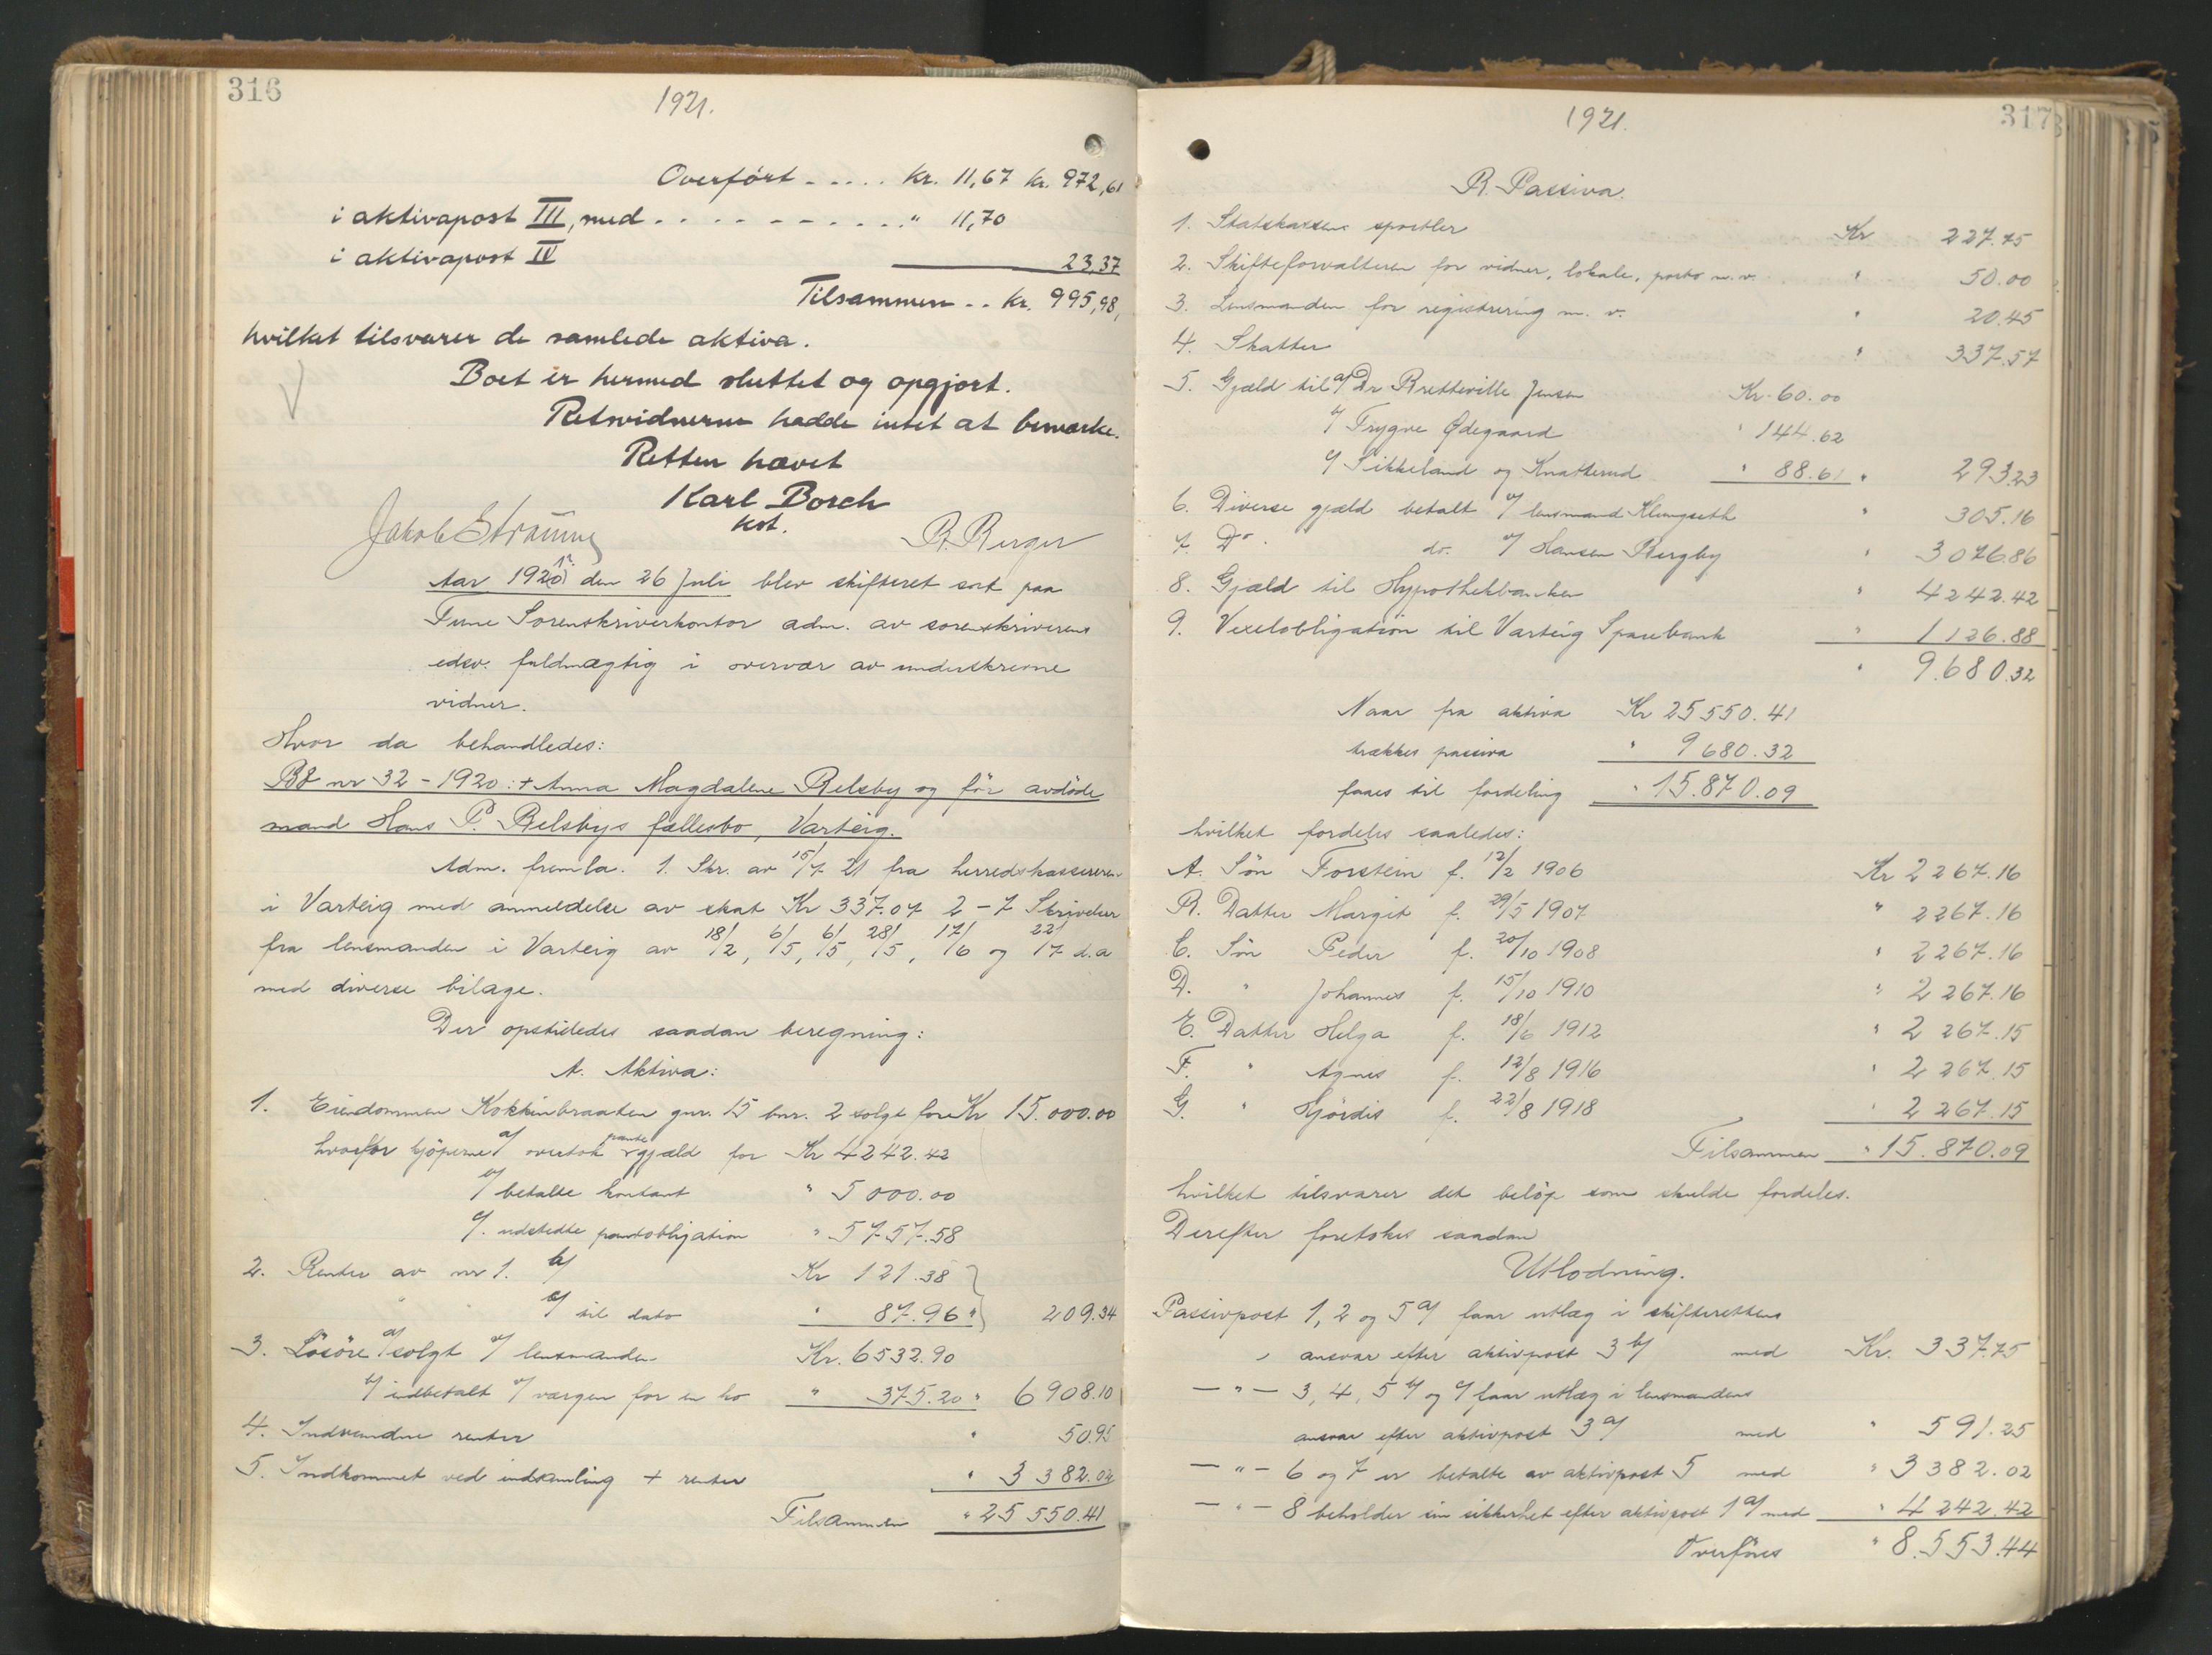 316
1921.
Overført ..... Kr. 11,67 Kr. 972,61
i aktivapost III, med .......... " 11,70
i aktivapost IV 23,37
Tilsammen .. Kr. 995,98,
hvilket tilsvarer de samlede aktiva.
Boet er hermed sluttet og opgjort.
Retsvidnerne hadde intet at bemærke.
Retten hævet
Karl Borch
kst.
Jakob Strømnes B. Berger
Aar 1921 den 26 Juli blev skifteret sat paa
Tune Sorenskriverkontor adm. av sorenskriverens
edsv. fuldmægtig i overvær av underskrevne
vidner.
Hvor da behandledes:
B∂ nr 32 - 1920: + Anna Magdalene Belsby og før avdøde
mand Hans P. Belsbys fællesbo, Varteig.
Adm. fremla. 1. Skr. av 15/7 21 fra herredskassereren
i Varteig med anmeldelse av skat Kr 337.07 2 - 7 Skrivelser
fra lensmanden i Varteig av 18/2, 6/5, 6/5, 28/5, 17/6 og 22/7 d.a
med diverse bilage.
Der opstilledes saadan beregning:
A. Aktiva:
1. Eiendommen Kokkinbraaten gnr. 15 bnr. 2 solgt for Kr 15.000.00
hvorfor kjøperne a/ overtok pantegjæld for Kr 4242.42
b/ betalte kontant " 5 000.00
c/. utstedte pantobligation " 5757.58
2. Renter av nr 1. b/ Kr 121.38
" c/ til dato " 87.96 " 209.34
3. Løsøre a/ solgt v/ lensmanden Kr. 6532.90
b/ indbetalt v/ værgen for en ko " 375.20 " 6 908.10
4. Indvundne renter " 50.95
5. Indkommet ved indsamling + renter " 3 382.02
Tilsammen " 25 550.41
317
1921.
B. Passiva.
1. Statskassens sportler Kr 227.75
2. Skifteforvalteren for vidner, lokale, porto m.v. " 50.00
3. Lensmanden for registrering m. v. " 20.45
4. Skatter " 337.57
5. Gjæld til a/ Dr Bretteville Jensen Kr. 60.00
b/ Trygve Ødegaard " 144.62
c/ Sikkeland og Knatterud " 88.61 " 293.23
6. Diverse gjæld betalt v/ lensmand Klungseth " 305.16
7. Do. do. v/ Hansen Bergby " 3076.86
8. Gjæld til Hypothekbanken " 4242.42
9. Vexelobligation til Varteig Sparebank " 1126.88
" 9.680.32
Naar fra aktiva Kr 25550.41
trækkes passiva " 9680.32
faaes til fordeling " 15.870.09
hvilket fordeles saaledes:
A. Søn Torstein f. 12/2 1906 Kr 2267.16
B. Datter Margit f. 29/5 1907 " 2267.16
C. Søn Peder f. 20/10 1908 " 2267.16
D. " Johannes f. 15/10 1910 " 2267.16
E. Datter Helga f. 18/6 1912 " 2267.15
F. " Agnes f. 12/8 1916 " 2267.15
G. " Hjørdis f. 22/8 1918 " 2267.15
Tilsammen " 15.870.09
hvilket tilsvarer det beløp som skulde fordeles.
Derefter foretokes saadan
Utlodning.
Passivpost 1, 2 og 5 a/ faar utlæg i skifterettens
ansvar efter aktivpost 3 b/ med Kr. 337.75
— " — 3, 4, 5 b/ og c/ faar utlæg i lensmandens
ansvar efter aktivpost 3 a/ med " 591.25
— " — 6 og 7 er betalte av aktivpost 5 med " 3382.02
— " — 8 beholder sin sikkerhet efter aktivpost 1 a/ med " 4242.42
Overføres " 8.553.44